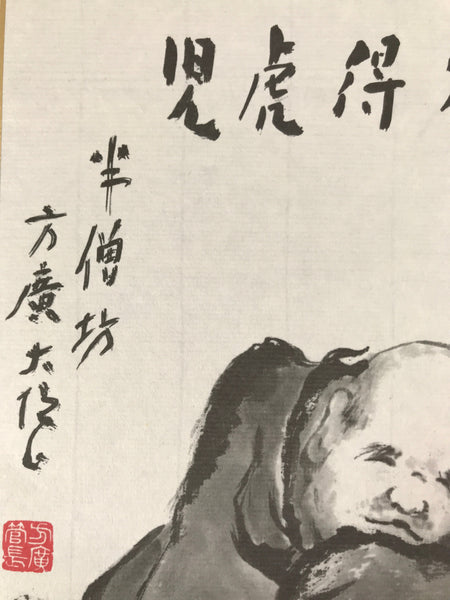 得虎児
半僧坊
方廣大
方廣
管長